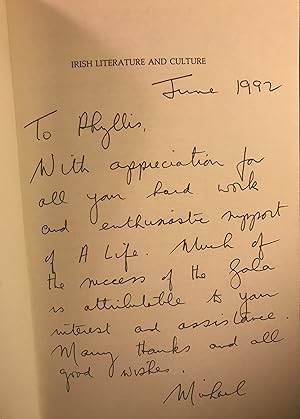 IRISH LITERATURE AND CULTURE
June 1992
To Phyllis,
With appreciation for
all your hard work
and enthusiastic support
of A Life. Much of
the success of the Gala
is attributable to your
interest and assistance.
Many thanks and all
good wishes.
Michael